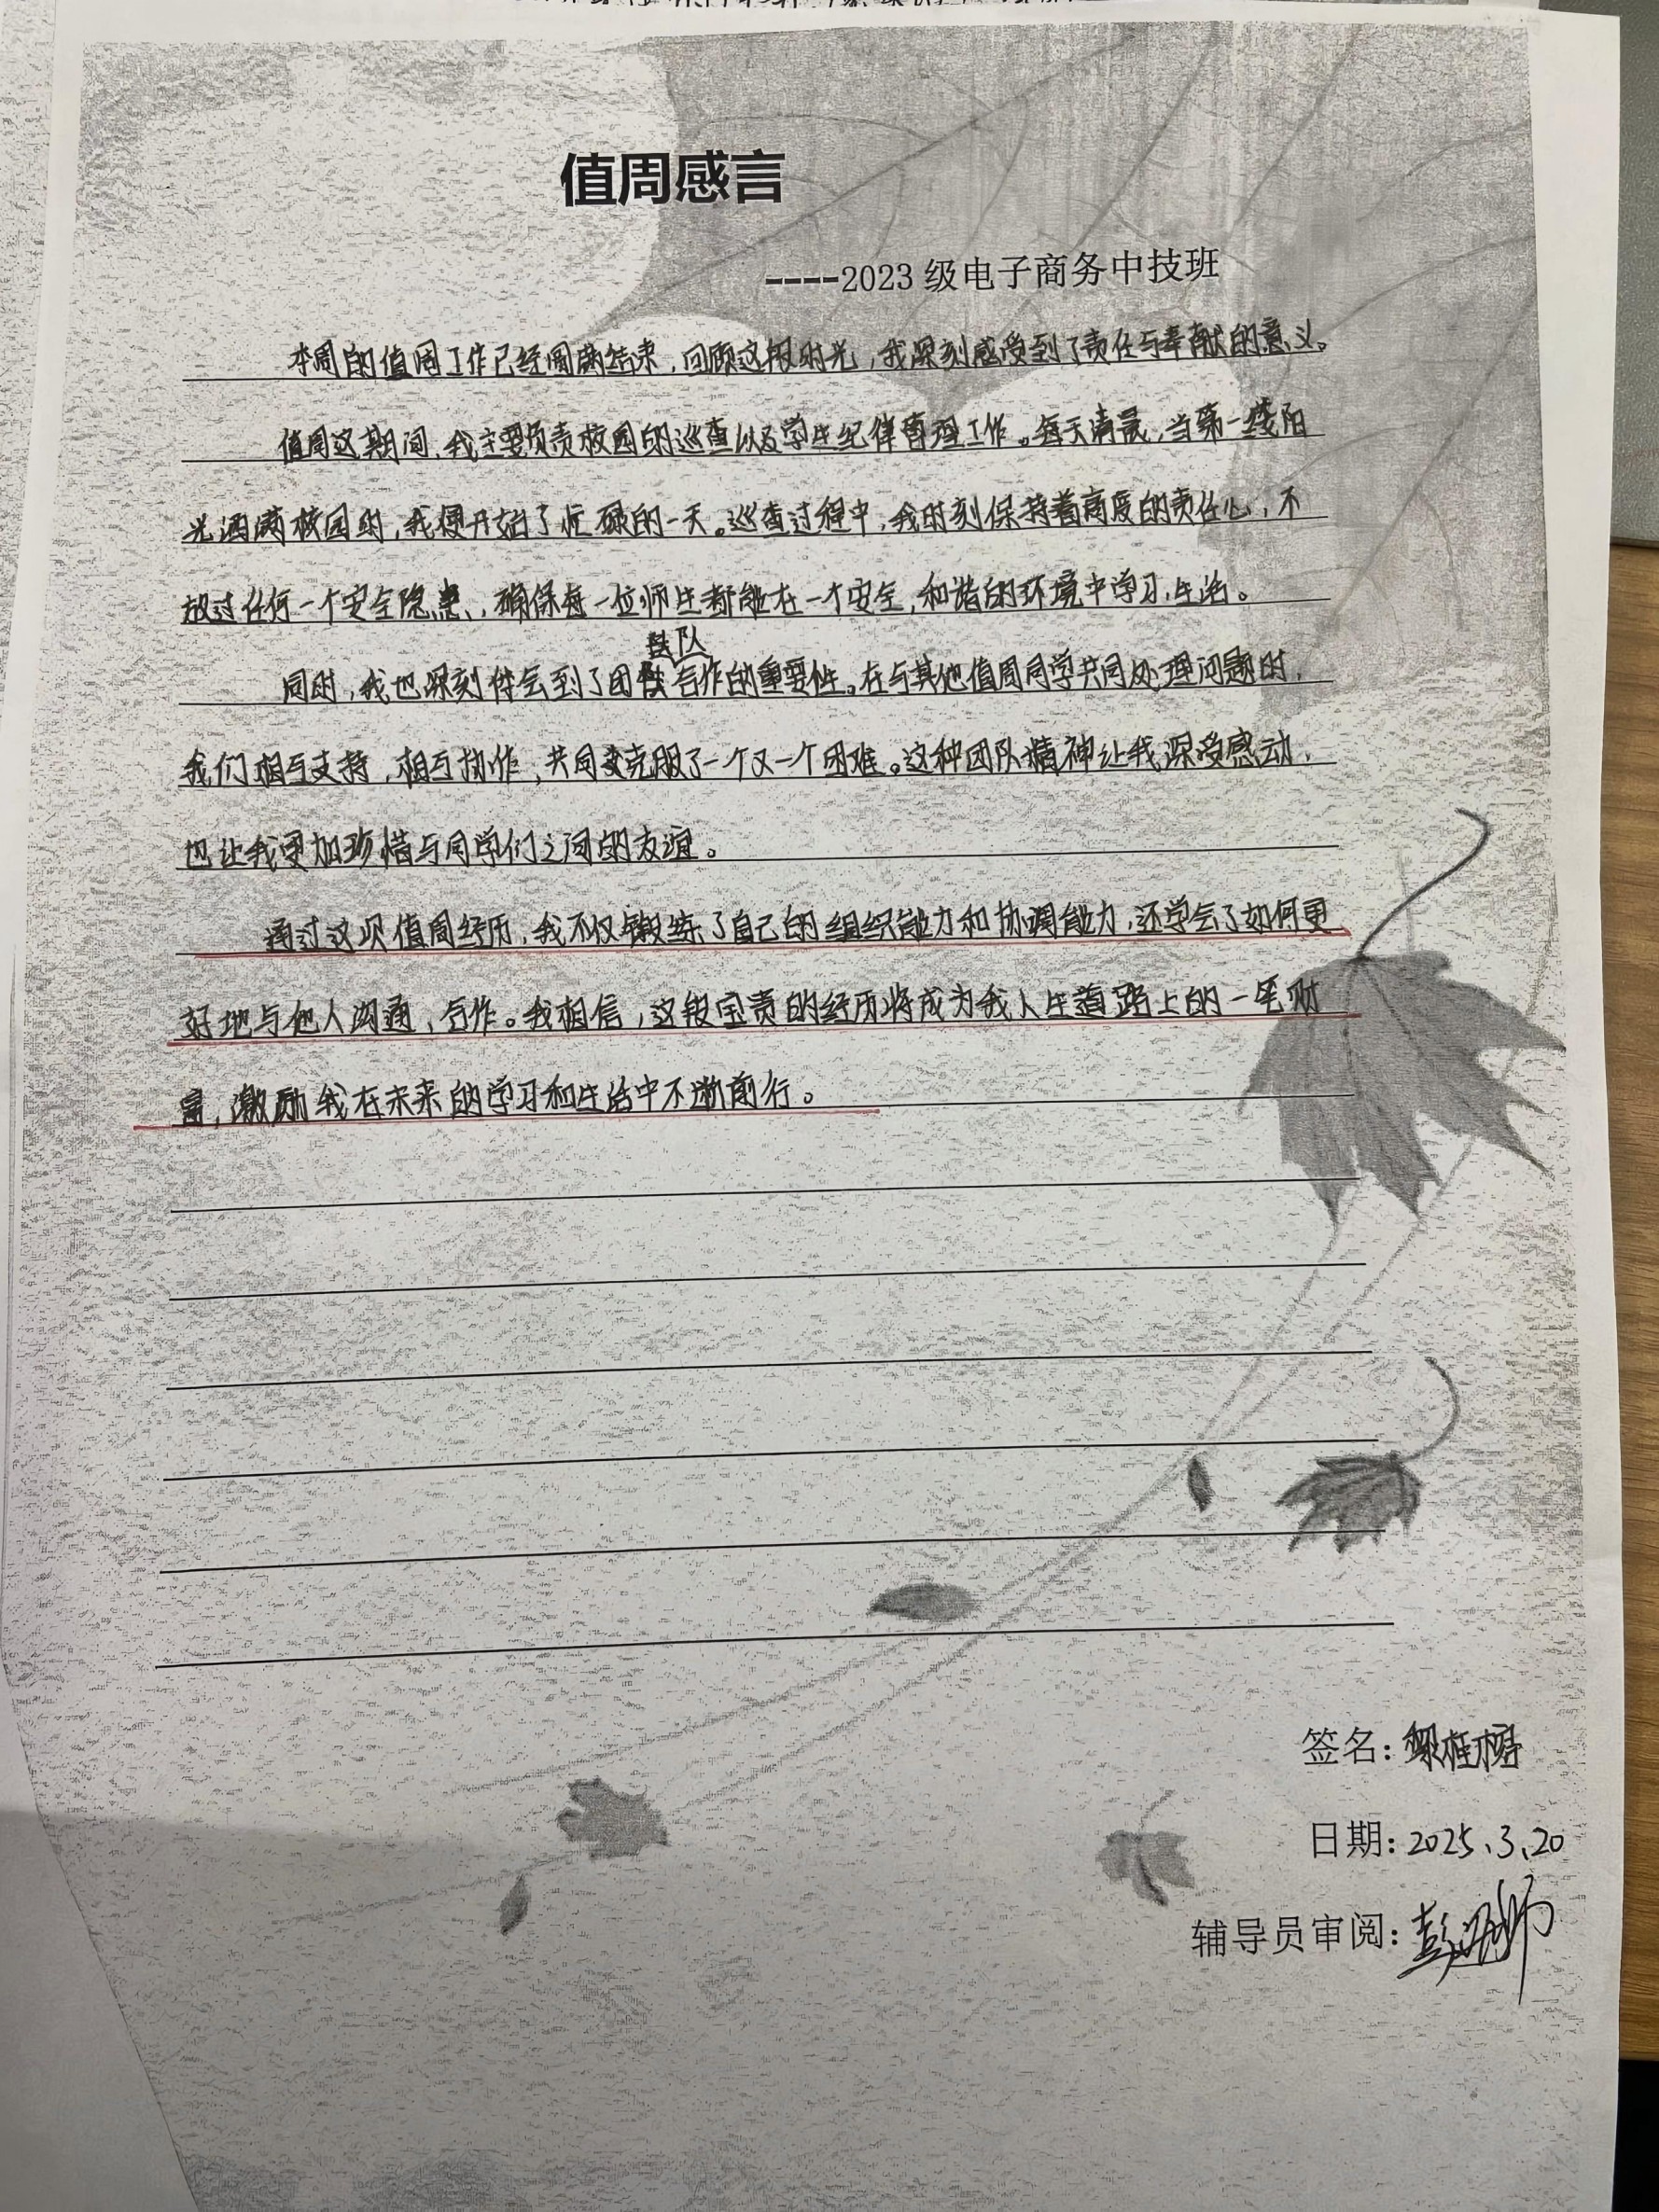 值周感言
----2023 级电子商务中技班
本周的值周工作已经圆满结束，回顾这段时光，我深刻感受到了责任与奉献的意义。
值周这期间，我主要负责校园的巡查以及学生纪律管理工作。每天清晨，当第一缕阳
光洒满校园时，我便开始了忙碌的一天。巡查过程中，我时刻保持着高度的责任心，不
放过任何一个安全隐患，确保每一位师生都能在一个安全，和谐的环境中学习、生活。
同时，我也深刻体会到了团队合作的重要性。在与其他值周同学共同处理问题时，
我们相互支持，相互协作，共同克服了一个又一个困难。这种团队精神让我深受感动，
也让我更加珍惜与同学们之间的友谊。
通过这次值周经历，我不仅锻练了自己的组织能力和协调能力，还学会了如何更
好地与他人沟通、合作。我相信，这段宝贵的经历将成为我人生道路上的一笔财
富，激励我在未来的学习和生活中不断前行。
签名：
日期：2025.3.20
辅导员审阅：